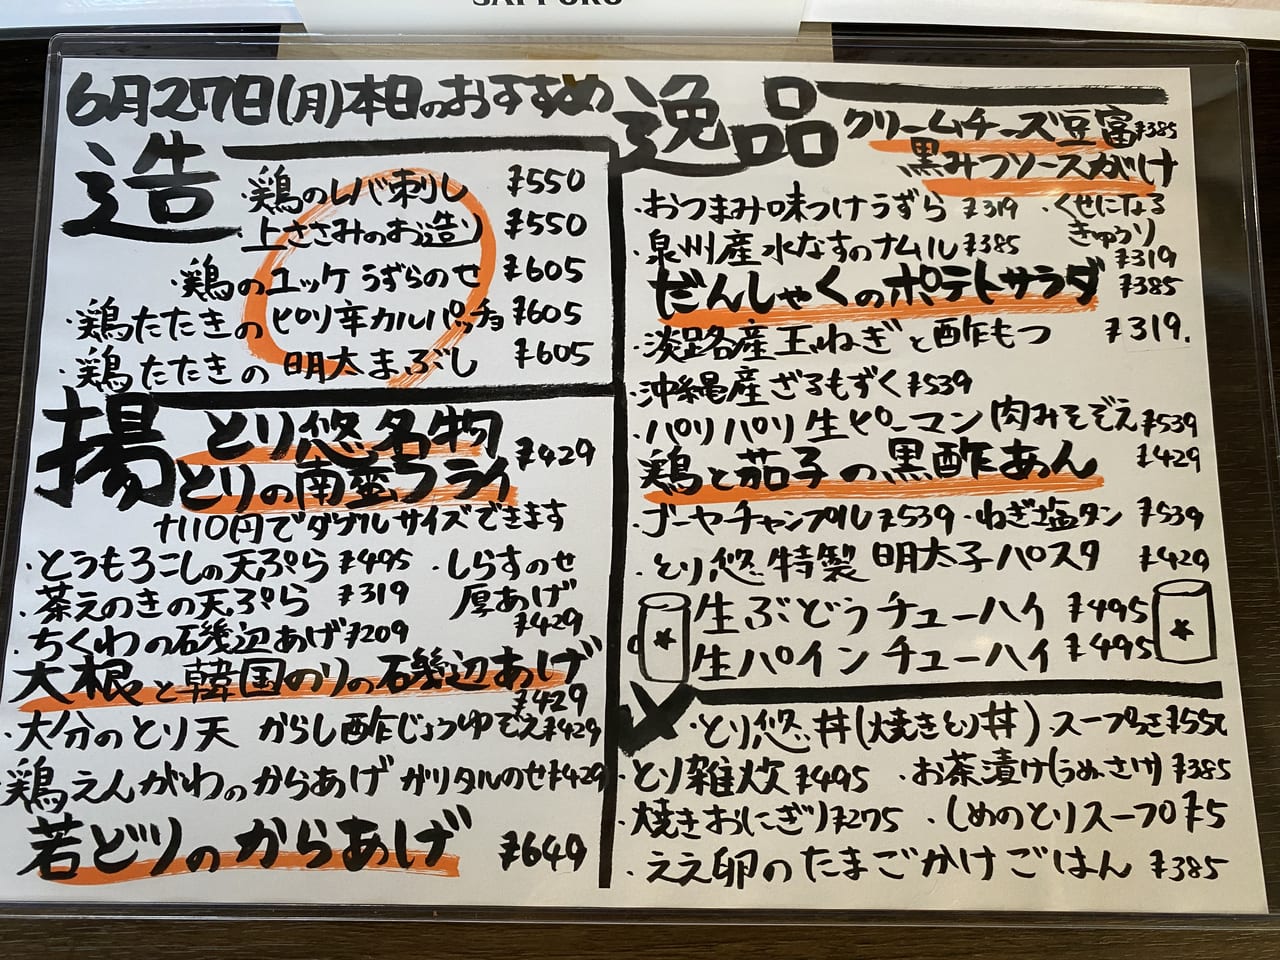 SAPPORO
6月27日(月)本日のおすすめ
造
鶏のレバ刺し ¥550
上ささみのお造り ¥550
・鶏のユッケうずらのせ ¥605
・鶏たたきのピリ辛カルパッチョ ¥605
・鶏たたきの明太まぶし ¥605
揚
とり悠名物
とりの南蛮フライ ¥429
+110円でダブルサイズできます
・とうもろこしの天ぷら ¥495
・しらすのせ
厚あげ
¥429
・茶えのきの天ぷら ¥319
・ちくわの磯辺あげ ¥209
大根と韓国のりの磯辺あげ
¥429
・大分のとり天 からし酢じょうゆぞえ ¥429
・鶏えんがわのからあげ ガリタルのせ ¥429
若どりのからあげ ¥649
逸品
クリームチーズ豆富 ¥385
黒みつソースがけ
・おつまみ味つけうずら ¥319
・くせになる
きゅうり
¥319
・泉州産水なすのナムル ¥385
だんしゃくのポテトサラダ ¥385
・淡路産玉ねぎと酢もつ ¥319.
・沖縄産ざるもずく ¥539
・パリパリ生ピーマン肉みそぞえ ¥539
鶏と茄子の黒酢あん ¥429
・ゴーヤチャンプル ¥539
・ねぎ塩タン ¥539
・とり悠特製明太子パスタ ¥429
生ぶどうチューハイ ¥495
生パインチューハイ ¥495
〆
・とり悠丼(焼きとり丼)スープつき ¥550
・とり雑炊 ¥495
・お茶漬け(うめ・さけ) ¥385
・焼きおにぎり ¥275
・しめのとりスープ0 ¥5
・ええ卵のたまごかけごはん ¥385